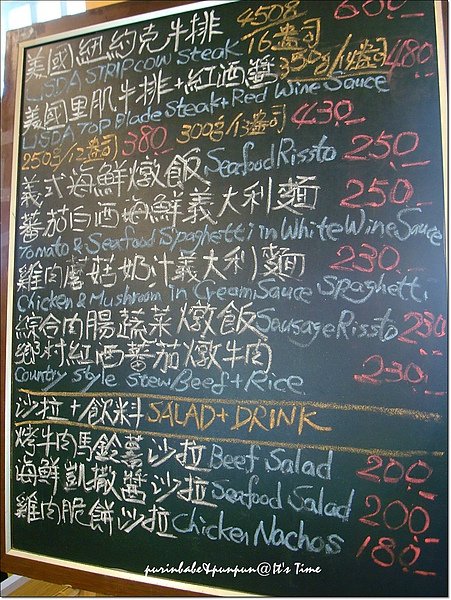 美國紐約克牛排 450g 16盎司 680
USDA STRIPcow Steak 350g/14盎司 480
美國里肌牛排+紅酒醬
USDA Top Blade Steak+Red Wine Sauce
250g/12盎司 380 300g/13盎司 430
義式海鮮燉飯 Seafood Rissto 250
蕃茄白酒海鮮義大利麵 250
Tomato & Seafood Spaghetti in White Wine Sauce
雞肉蘑菇奶汁義大利麵 230
Chicken & Mushroom in Cream Sauce Spaghetti
綜合肉腸蔬菜燉飯 Sausage Rissto 230
鄉村紅酒蕃茄燉牛肉
Country Style Stew Beef+Rice 230
沙拉+飲料 SALAD+DRINK
烤牛肉馬鈴薯沙拉 Beef Salad 200
海鮮凱撒醬沙拉 Seafood Salad 200
雞肉脆餅沙拉 Chicken Nachos 180
purinbabe&punpun@It's Time